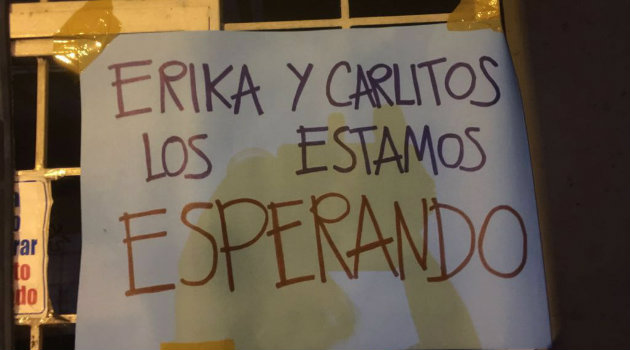 ERIKA Y CARLITOS
LOS ESTAMOS
ESPERANDO